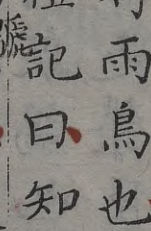 雨鳥也
記曰知